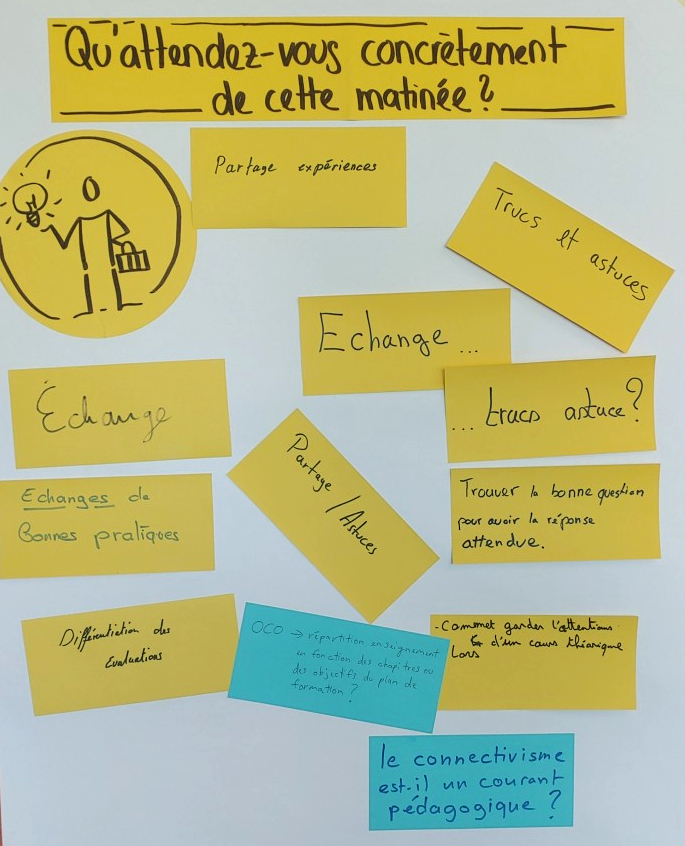 Qu'attendez-vous concrètement
de cette matinée ?
Partage expériences
Trucs et astuces
Echange ...
... trucs astuce ?
Échange
Partage / Astuces
Echanges de
Bonnes pratiques
Trouver la bonne question
pour avoir la réponse
attendue.
Différentiation des
Evaluations
OCO → répartition enseignement
en fonction des chapitres ou
des objectifs du plan de
formation ?
- Commet garder l'attentions
d'un cours théorique
Lors
le connectivisme
est-il un courant
pédagogique ?